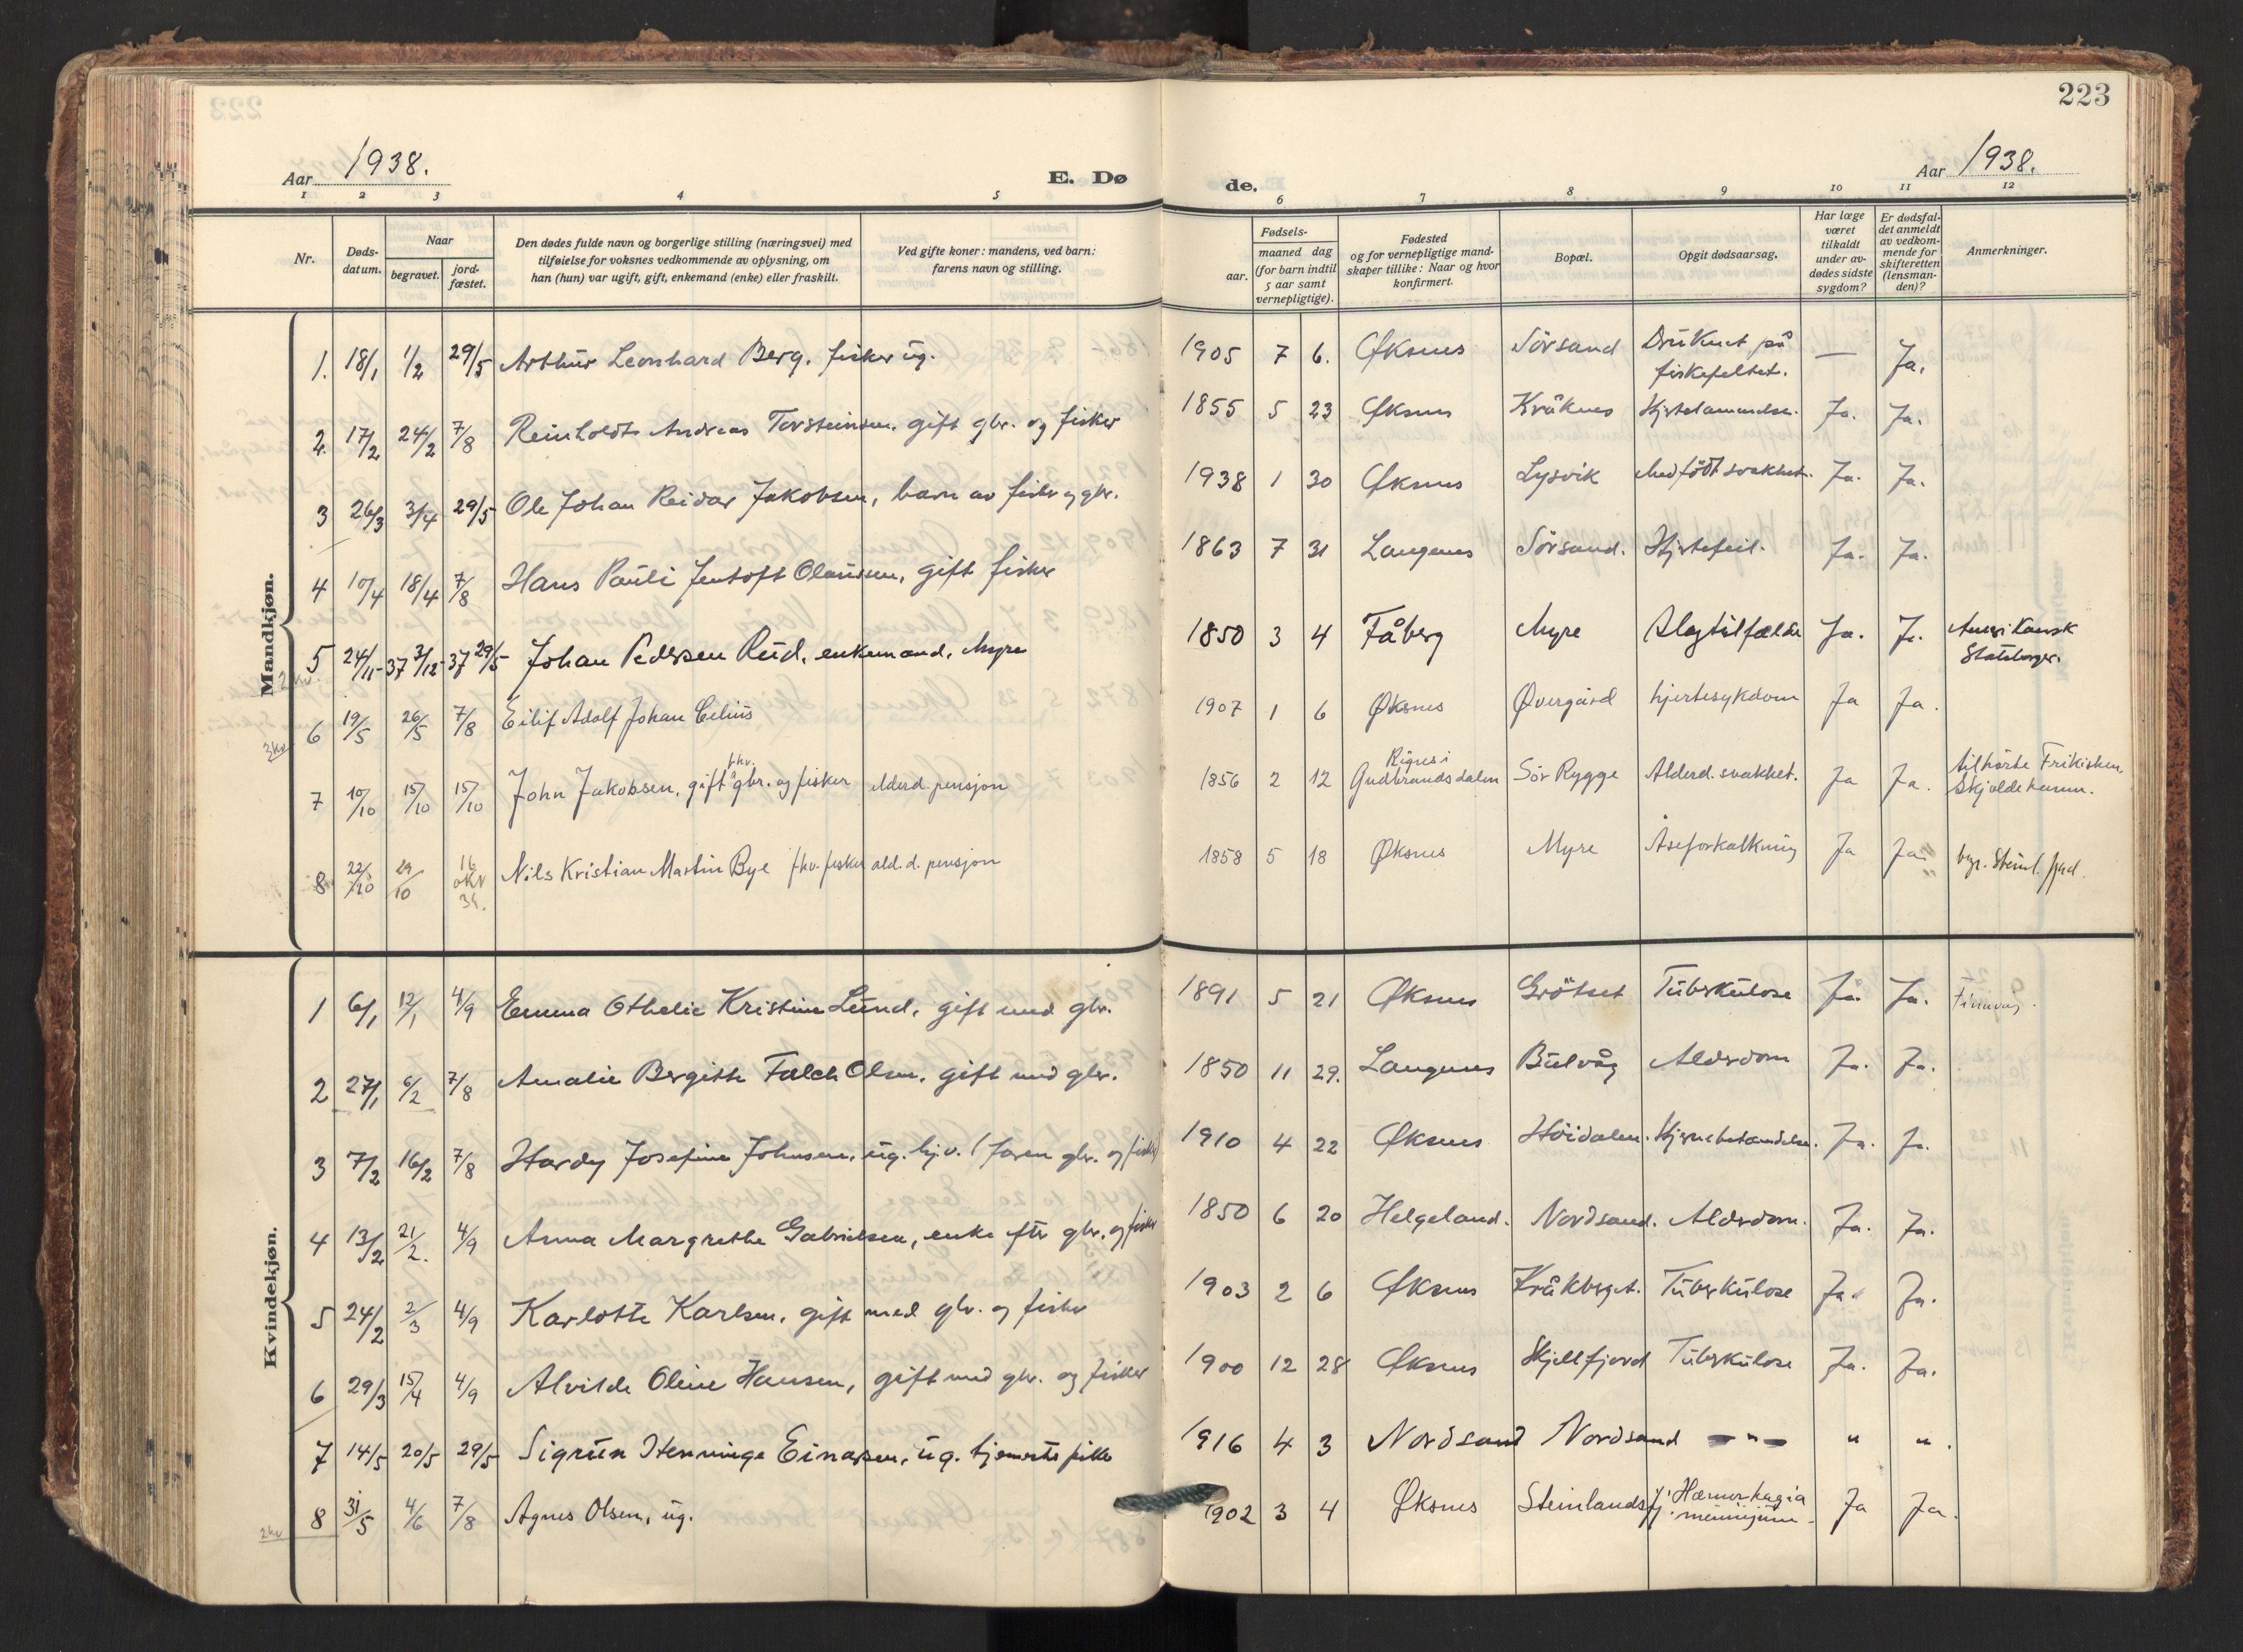 223
Aar 1938.
E. Dø
de.
Aar 1938.
1 2 3 4 5 6 7 8 9 10 11 12
Nr.
Døds-
datum.
Naar
begravet.
jord-
fæstet.
Den dødes fulde navn og borgerlige stilling (næringsvei) med
tilføielse for voksnes vedkommende av oplysning, om
han (hun) var ugift, gift, enkemand (enke) eller fraskilt.
Ved gifte koner: mandens, ved barn:
farens navn og stilling.
Fødsels-
aar.
maaned dag
(for barn indtil
5 aar samt
vernepligtige).
Fødested
og for vernepligtige mand-
skaper tillike: Naar og hvor
konfirmert.
Bopæl.
Opgit dødsaarsag.
Har læge
været
tilkaldt
under av-
dødes sidste
sygdom?
Er dødsfal-
det anmeldt
av vedkom-
mende for
skifteretten
(lensman-
den)?
Anmerkninger.
Mandkjøn.
1. 18/1 1/2 29/5 Arthur Leonhard Berg, fisker ug. 1905 7 6. Øksnes Sörsand Druknet på
fiskefeltet. — Ja.
2. 17/2 24/2 7/8 Reinholdt Andreas Torsteinsen, gift gbr. og fisker 1855 5 23 Øksnes Kråknes Hjertelammelse. Ja. Ja.
3 26/3 3/4 29/5 Ole Johan Reidar Jakobsen, barn av fisker og gbr. 1938 1 30 Øksnes Lysvik Medfödt svakhet. Ja. Ja.
4 10/4 18/4 7/8 Hans Pauli Jentoft Olaussen, gift fisker 1863 7 31 Langenes Sörsand. Hjertefeil. Ja. Ja.
5 24/11-37 3/12-37 29/5 Johan Pedersen Rud, enkemand, Myre 1850 3 4 Fåberg Myre Slagtilfælde Ja. Ja. Amerikansk
Statsborger.
6 19/5 26/5 7/8 Eilif Adolf Johan Celius 1907 1 6 Øksnes Øvergård hjertesykdom Ja Ja.
7 10/10 15/10 15/10 John Jakobsen, gift fhv. gbr. og fisker Alderd. pensjon 1856 2 12 Gudbrandsdalen Sör Rygge Alderd. svakhet. Ja Ja. tilhörte Frikirken
Skjoldehamn.
8 22/10 29/10 16 okt 38. Nils Kristian Martin Bye fhv. fisker ald. d. pensjon 1858 5 18 Øksnes Myre Åreforkalkning Ja Ja begr. Steinl. fjord.
Kvindekjøn.
1 6/1 12/1 4/9 Emma Othelie Kristine Lund, gift med gbr. 1891 5 21 Øksnes Grötset Tuberkulose Ja. Ja. Finnvåg.
2 27/1 6/2 7/8 Amalie Bergitte Falch Olsen, gift med gbr. 1850 11 29. Langenes Bulvåg Alderdom Ja. Ja.
3 7/2 16/2 7/8 Hardy Josefine Johnsen, ug. hj.v. (faren gbr. og fisker) 1910 4 22 Øksnes Höidalen. Hjernebetændelse. Ja. Ja.
4 13/2 21/2. 4/9 Anna Margrethe Gabrielsen, enke efter gbr. og fisker 1850 6 20 Helgeland. Nordsand. Alderdom. Ja. Ja.
5 24/2 2/3 4/9 Karlotte Karlsen, gift med gbr. og fisker 1903 2 6 Øksnes Kråkberget. Tuberkulose Ja. Ja.
6 29/3 15/4 4/9 Alvilde Oline Hansen, gift med gbr. og fisker 1900 12 28 Øksnes Skjellfjord Tuberkulose Ja. Ja.
7 14/5 20/5 29/5 Sigrun Henninge Einarsen, ug. hjemmev. pike 1916 4 3 Nordsand Nordsand — " — " ".
8 31/5 4/6 7/8 Agnes Olsen, ug. 1902 3 4 Øksnes Steinlandsfj. Hæmorhagia
Ja Ja.